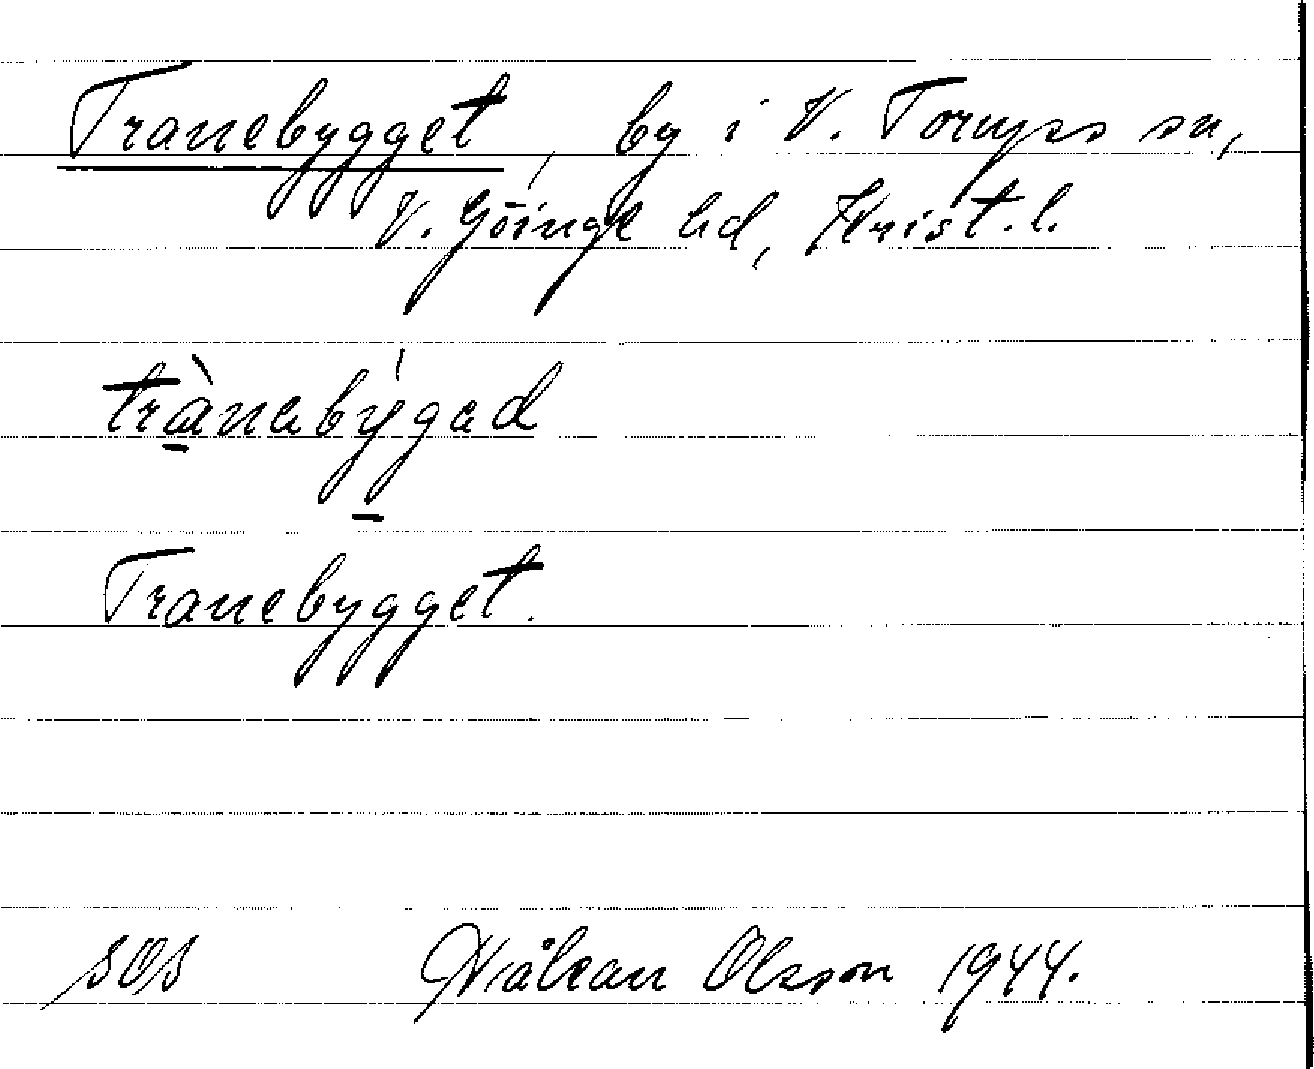 Tranebygget, by i V. Torups sn,
V. Göinge hd, Krist. l.
trànabýgad
Tranebygget.
SOS Håkan Olsson 1944.